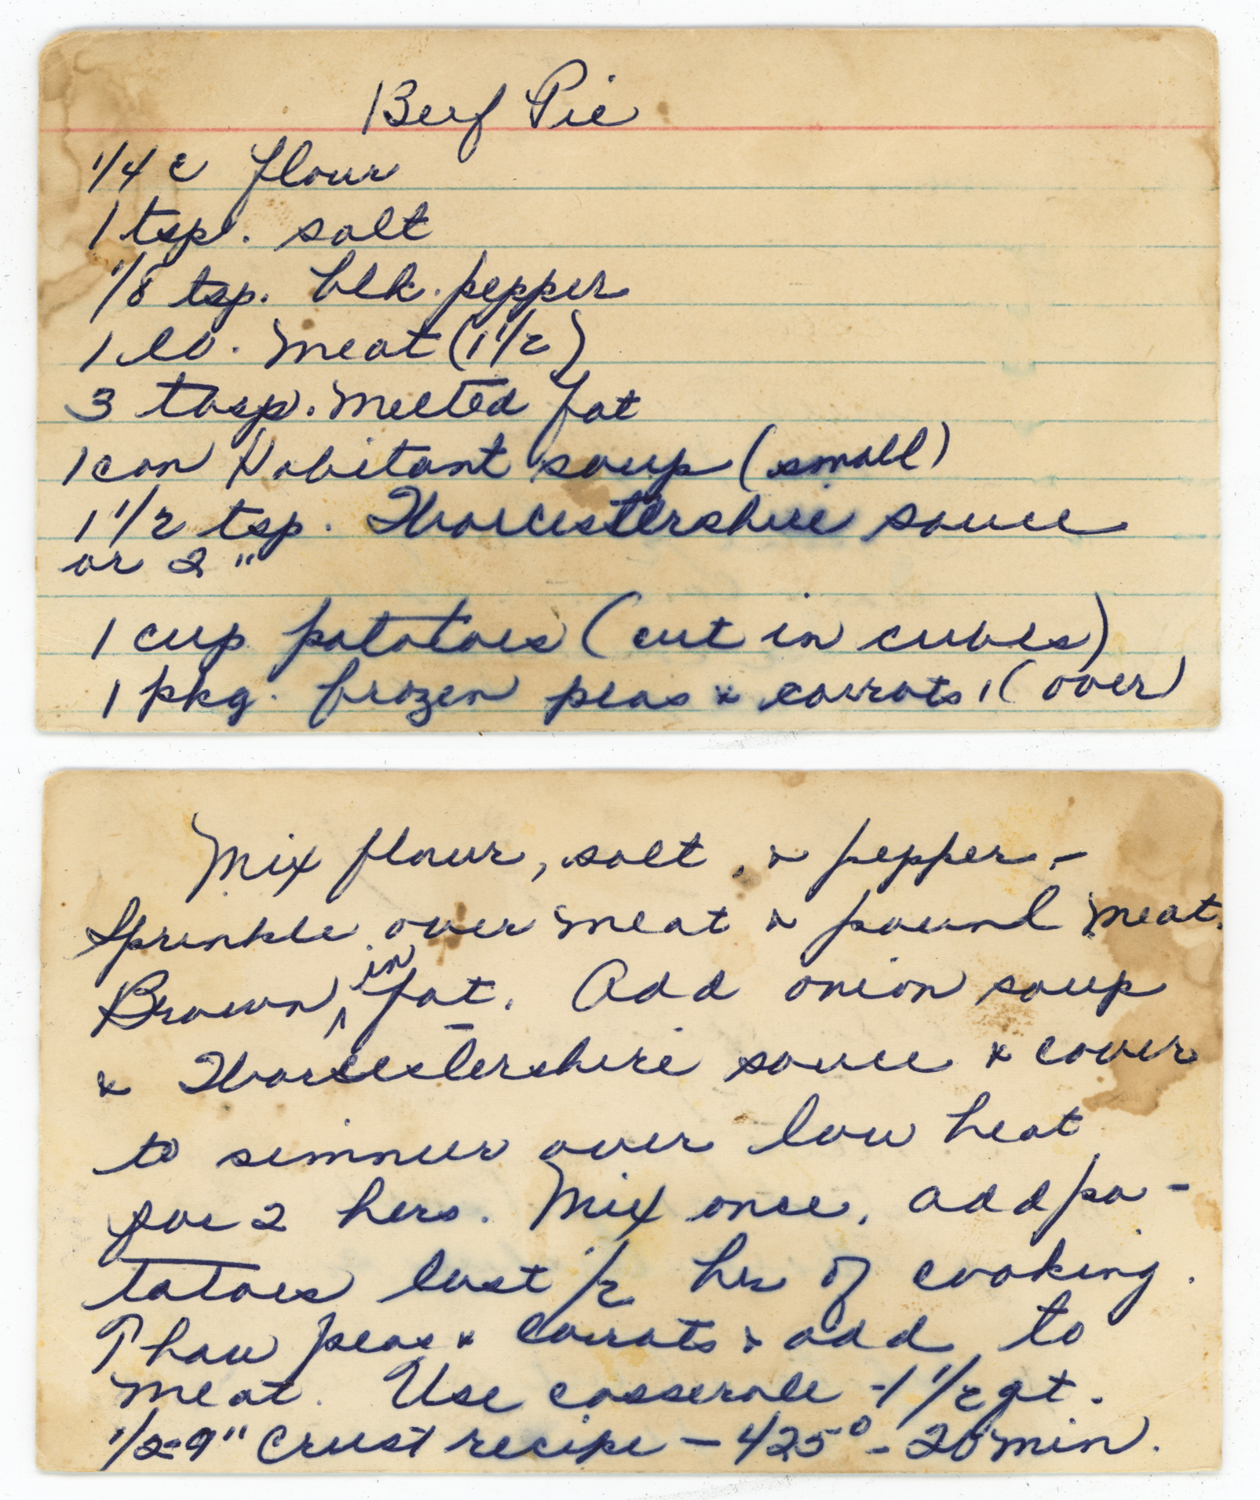 Beef Pie
1/4 c flour
1 tsp. salt
1/8 tsp. blk. pepper
1 lb. meat (1 1/2)
3 tbsp. melted fat
1 can Habitant soup (small)
1 1/2 tsp. Worcestershire sauce
or 2 "
1 cup potatoes (cut in cubes)
1 pkg. frozen peas & carrots, (over)
Mix flour, salt, & pepper -
Sprinkle over meat & pound meat.
Brown in fat. Add onion soup
& Worcestershire sauce & cover
to simmer over low heat
for 2 hrs. Mix once, add po-
tatoes last 1/2 hr of cooking.
Thaw peas & carrots & add to
meat. Use casserole - 1 1/2 qt.
1/2 - 9" crust recipe - 425° - 20 min.